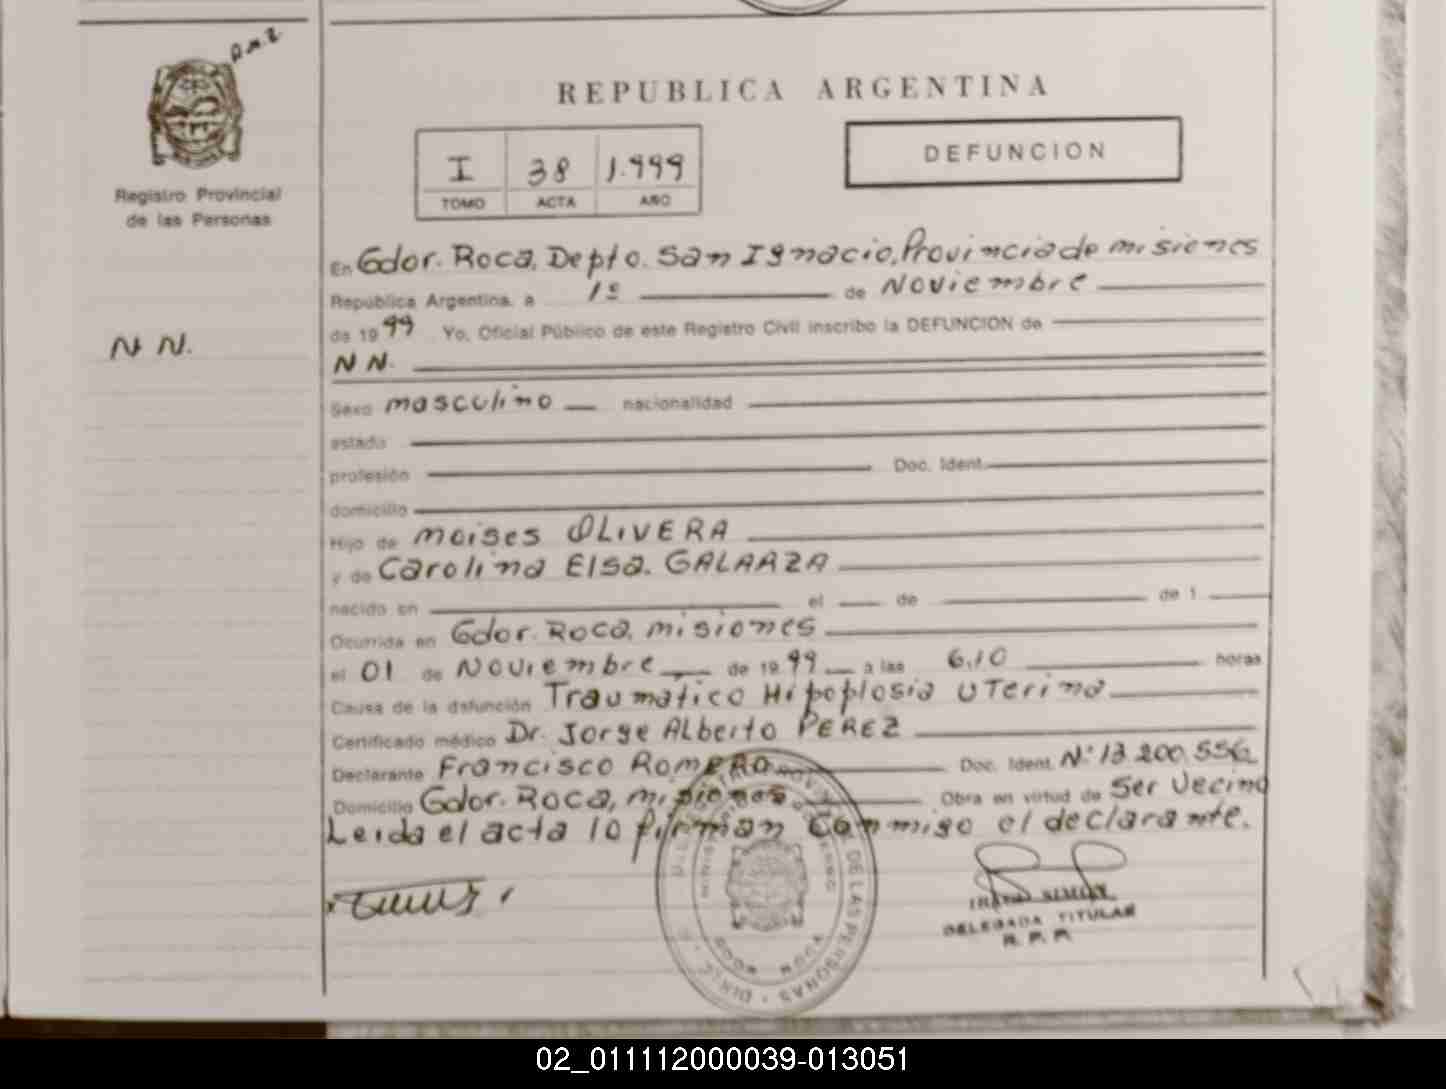 REPUBLICA ARGENTINA
Registro Provincial
de las Personas
I 38 1.999
TOMO ACTA AÑO
DEFUNCION
N N.
En Gdor. Roca, Depto. San Ignacio, Provincia de misiones
República Argentina, a 1º de Noviembre
de 1999 Yo, Oficial Público de este Registro Civil inscribo la DEFUNCION de
N N.
Sexo masculino nacionalidad
estado
profesión Doc. Ident.
domicilio
Hijo de moises OLIVERA
y de Carolina Elsa. GALARZA
nacido en el de de 1
Ocurrida en Gdor. Roca, misiones
el 01 de Noviembre de 1999 a las 6,10 horas
Causa de la defunción Traumatico Hipoplosia uTerina
Certificado médico Dr. Jorge Alberto PEREZ
Declarante Francisco Romero Doc. Ident. Nº 13.200.556
Domicilio Gdor. Roca, misiones Obra en virtud de Ser Vecino
Leida el acta lo firman Conmigo el declarante.
SIMON
DELEGADA TITULAR
R. P. P.
PROVINCIAL DE LAS PERSONAS
GDOR ROCA
02_011112000039-013051